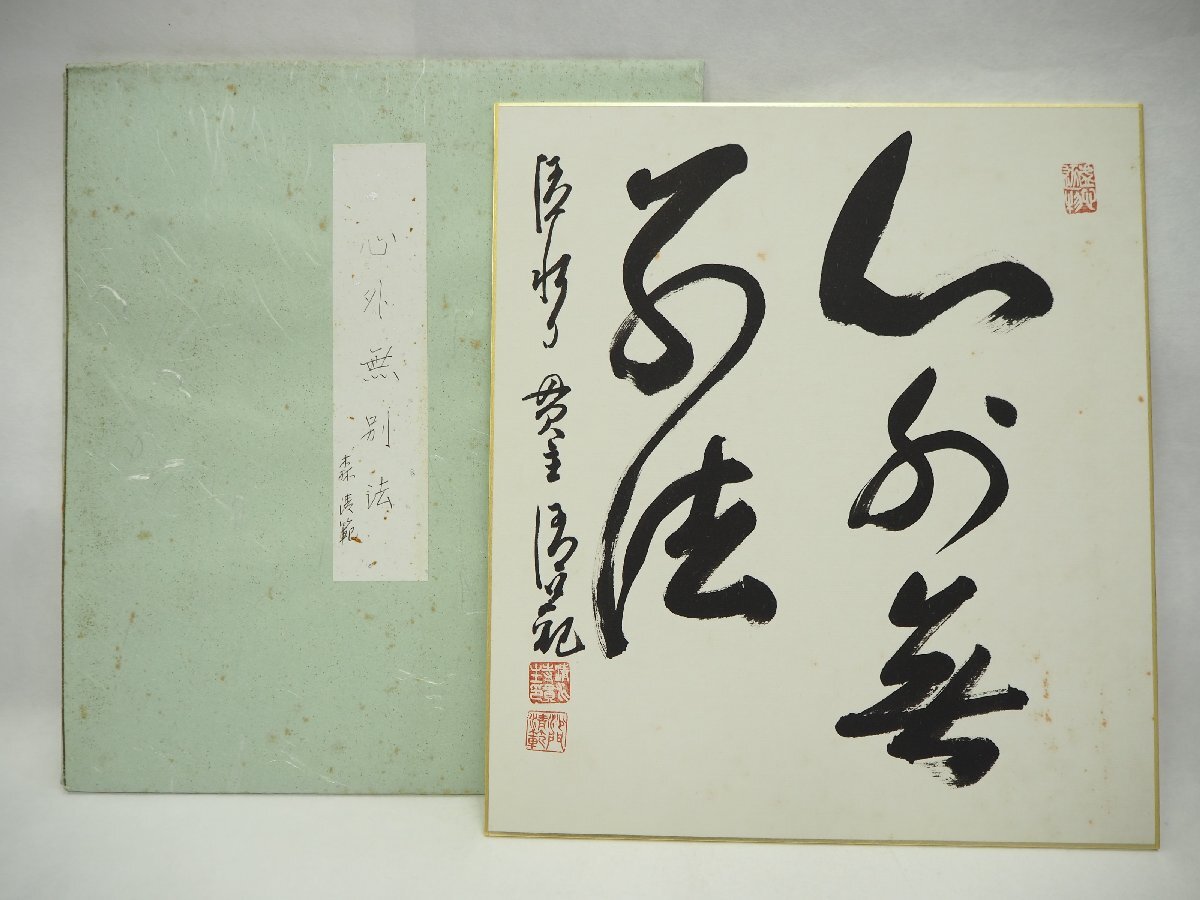 心外無別法
森清範
心外無
別法
清水 貫主 清範
沙門
清範